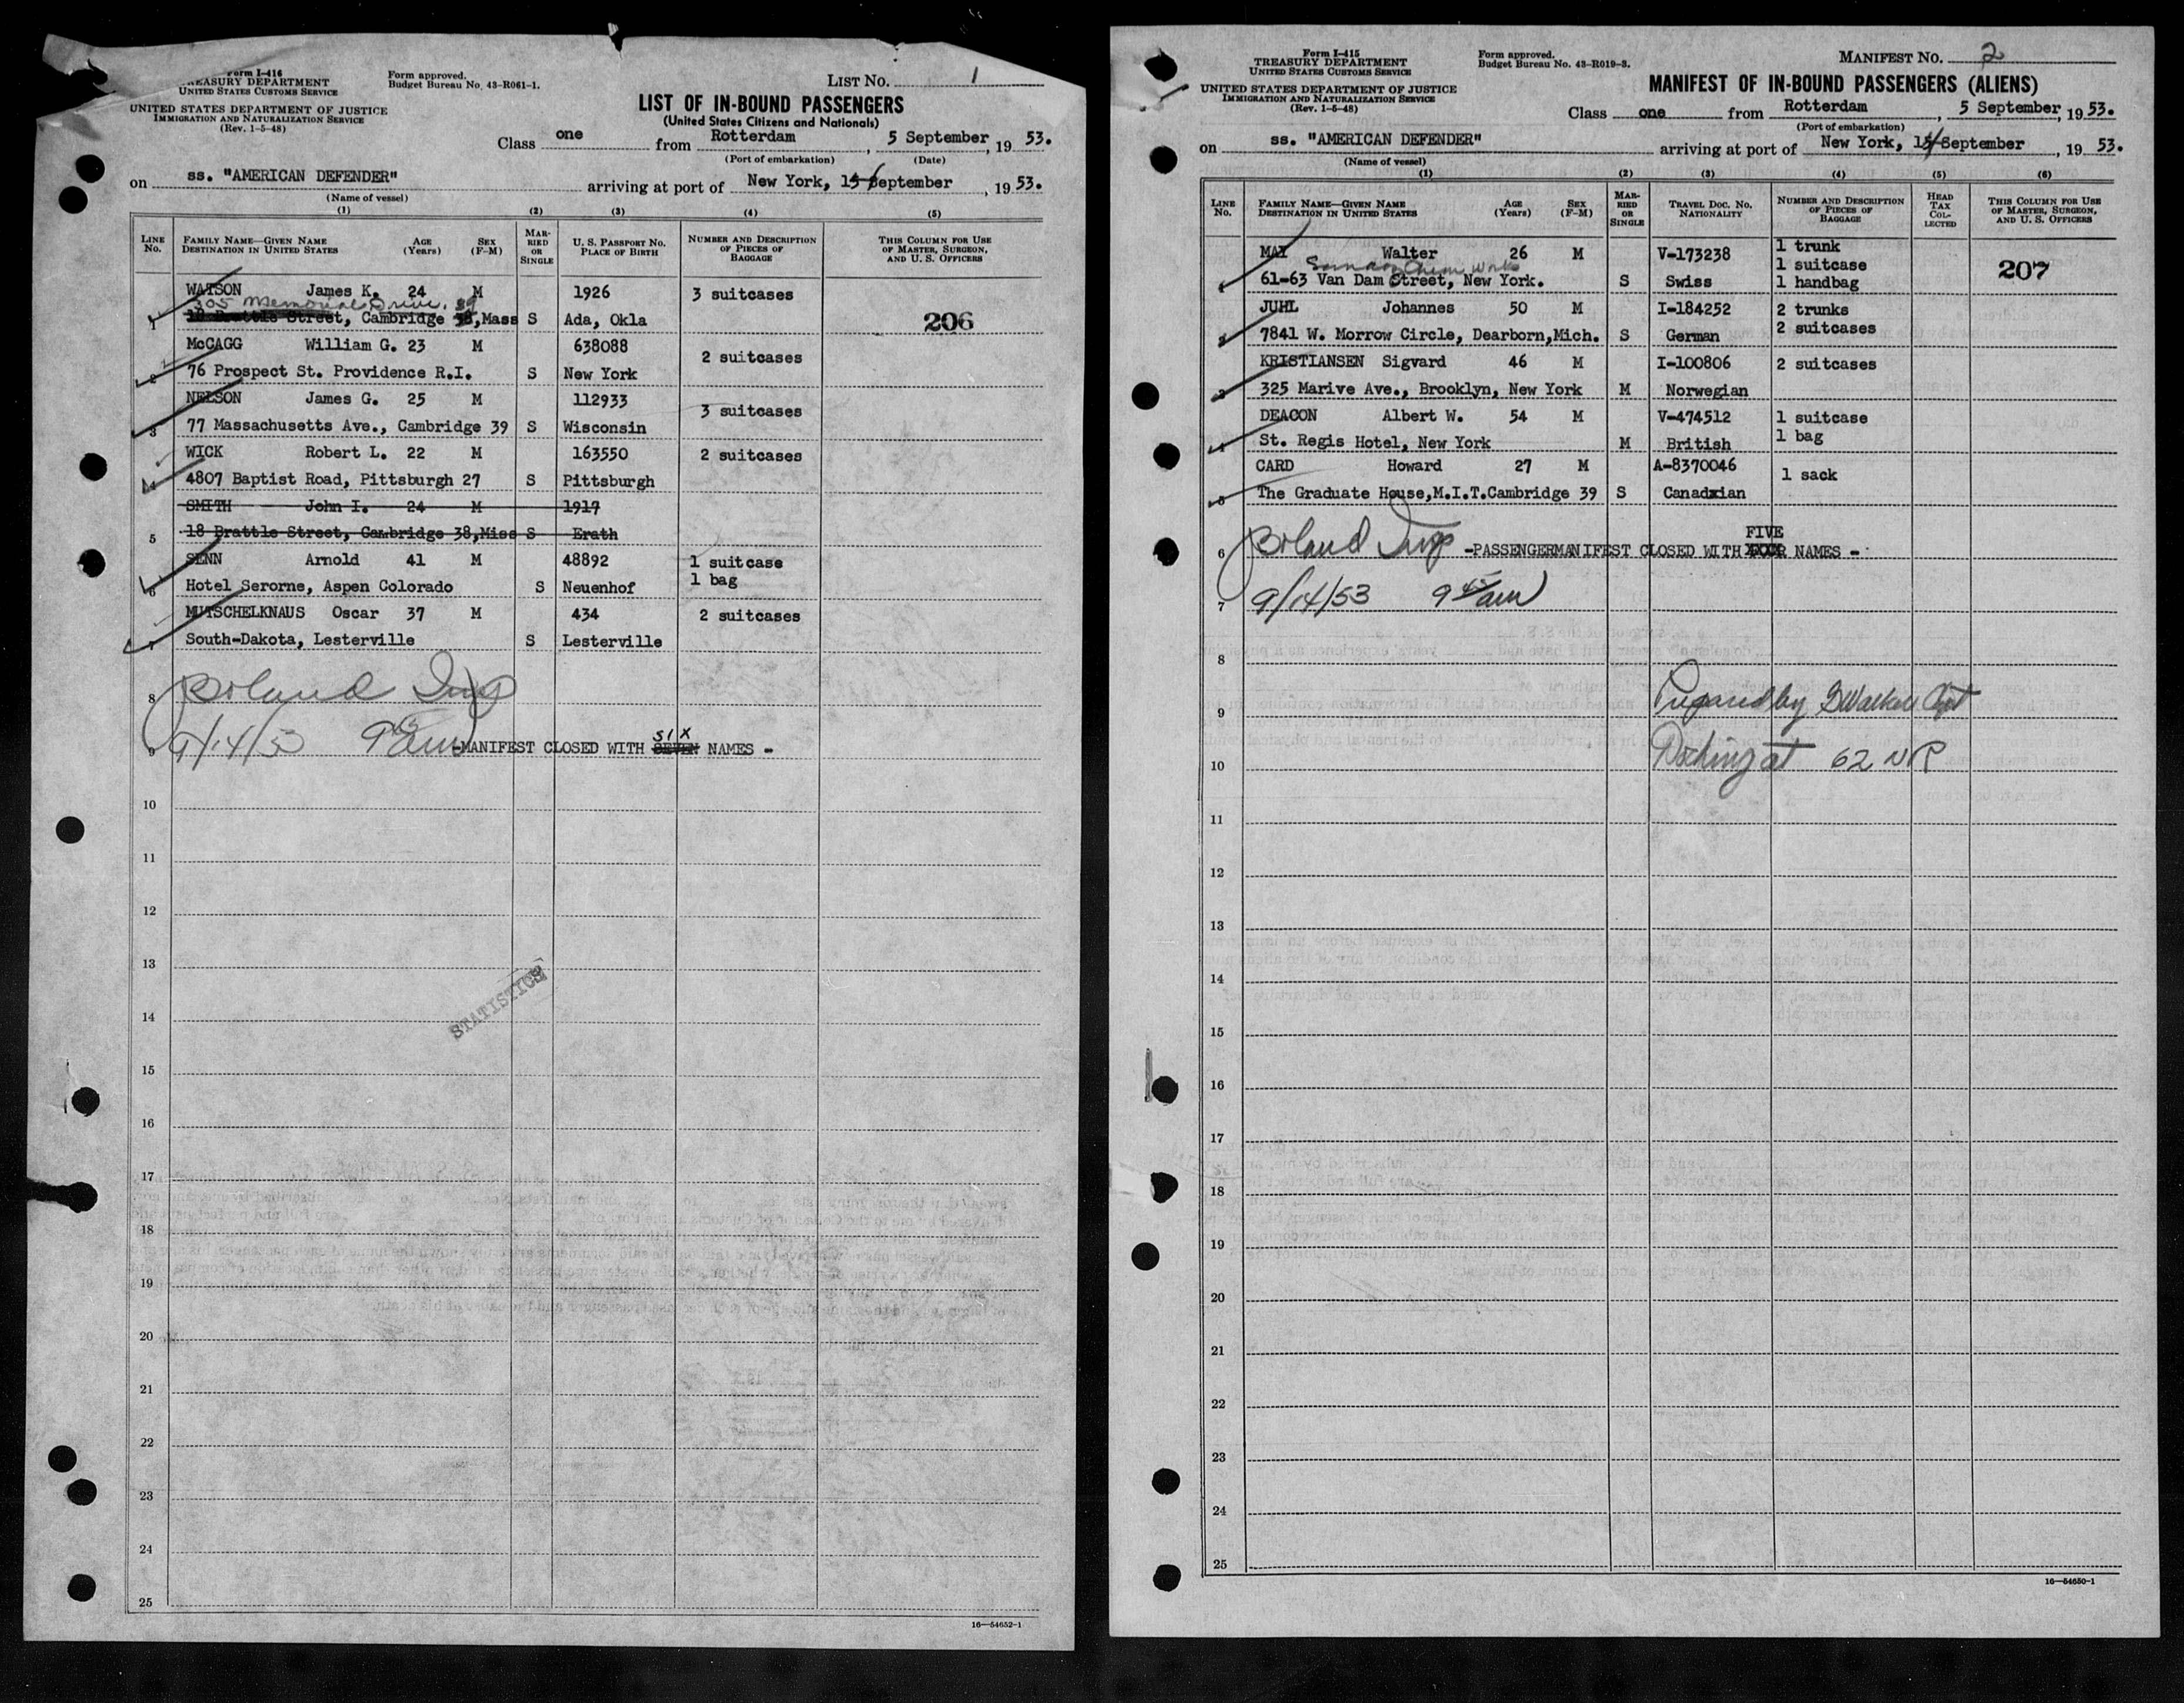 Form I-416
TREASURY DEPARTMENT
UNITED STATES CUSTOMS SERVICE
UNITED STATES DEPARTMENT OF JUSTICE
IMMIGRATION AND NATURALIZATION SERVICE
(Rev. 1-5-48)
Form approved.
Budget Bureau No. 43-R061-1.
LIST NO. 1
LIST OF IN-BOUND PASSENGERS
(United States Citizens and Nationals)
Class one from Rotterdam, 5 September, 19 53.
(Port of embarkation) (Date)
on ss. "AMERICAN DEFENDER" arriving at port of New York, 15 September, 19 53.
(Name of vessel)
(1) (2) (3) (4) (5)
LINE NO. FAMILY NAME—GIVEN NAME DESTINATION IN UNITED STATES AGE (Years) SEX (F-M) MARRIED OR SINGLE U. S. PASSPORT NO. PLACE OF BIRTH NUMBER AND DESCRIPTION OF PIECES OF BAGGAGE THIS COLUMN FOR USE OF MASTER, SURGEON, AND U. S. OFFICERS
WATSON James K. 24 M 1926 3 suitcases
305 Memorial Drive, 39
1 18 Brattle Street, Cambridge 38,Mass S Ada, Okla 206
McCAGG William G. 23 M 638088 2 suitcases
2 76 Prospect St. Providence R.I. S New York
NELSON James G. 25 M 112933 3 suitcases
3 77 Massachusetts Ave., Cambridge 39 S Wisconsin
WICK Robert L. 22 M 163550 2 suitcases
4 4807 Baptist Road, Pittsburgh 27 S Pittsburgh
SMITH John I. 24 M 1917
5 18 Brattle Street, Cambridge 38,Miss S Erath
SENN Arnold 41 M 48892 1 suitcase
6 Hotel Serorne, Aspen Colorado S Neuenhof 1 bag
MUTSCHELKNAUS Oscar 37 M 434 2 suitcases
7 South-Dakota, Lesterville S Lesterville
8 Boland Insp
9 9/14/53 9 45 am -MANIFEST CLOSED WITH SEVEN SIX NAMES -
10
11
12
13
STATISTICS
14
15
16
17
18
19
20
21
22
23
24
25
16—54652-1
Form I-415
TREASURY DEPARTMENT
UNITED STATES CUSTOMS SERVICE
UNITED STATES DEPARTMENT OF JUSTICE
IMMIGRATION AND NATURALIZATION SERVICE
(Rev. 1-5-48)
Form approved.
Budget Bureau No. 43-R019-3.
MANIFEST NO. 2
MANIFEST OF IN-BOUND PASSENGERS (ALIENS)
Class one from Rotterdam, 5 September, 19 53.
(Port of embarkation)
on ss. "AMERICAN DEFENDER" arriving at port of New York, 15 September, 19 53.
(Name of vessel)
(1) (2) (3) (4) (5) (6)
LINE NO. FAMILY NAME—GIVEN NAME DESTINATION IN UNITED STATES AGE (Years) SEX (F-M) MARRIED OR SINGLE TRAVEL DOC. NO. NATIONALITY NUMBER AND DESCRIPTION OF PIECES OF BAGGAGE HEAD TAX COLLECTED THIS COLUMN FOR USE OF MASTER, SURGEON, AND U. S. OFFICERS
MAY Walter 26 M V-173238 1 trunk
Chem Works 1 suitcase 207
1 61-63 Van Dam Street, New York. S Swiss 1 handbag
JUHL Johannes 50 M I-184252 2 trunks
2 7841 W. Morrow Circle, Dearborn,Mich. S German 2 suitcases
KRISTIANSEN Sigvard 46 M I-100806 2 suitcases
3 325 Marive Ave., Brooklyn, New York M Norwegian
DEACON Albert W. 54 M V-474512 1 suitcase
4 St. Regis Hotel, New York M British 1 bag
CARD Howard 27 M A-8370046 1 sack
5 The Graduate House,M.I.T.Cambridge 39 S Canadxian
FIVE
6 Boland Insp -PASSENGERMANIFEST CLOSED WITH FOUR NAMES -
7 9/14/53 9 45 am
8
9 Prepared by
10 Docking at 62 NR
11
12
13
14
15
16
17
18
19
20
21
22
23
24
25
16—54650-1